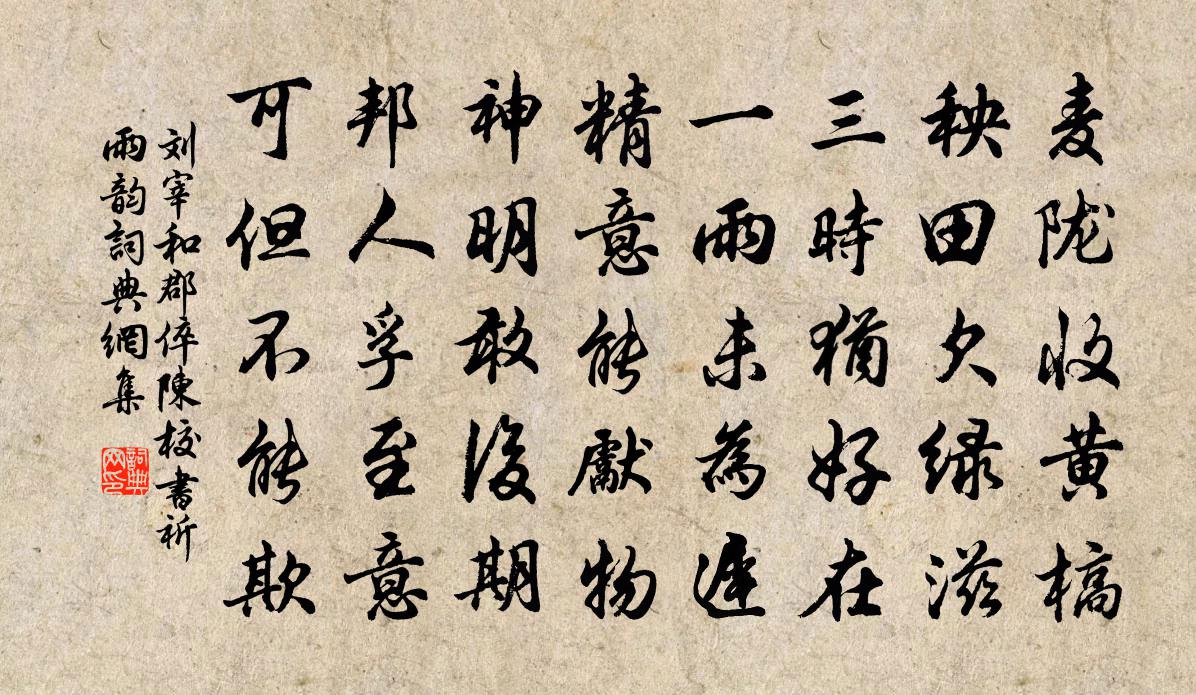 麦陇收黄槁
秧田欠绿滋
三時犹好在
一雨未為遲
精意能獻物
神明敢後期
邦人孚至意
可但不能欺
刘宰和郡倅陳校書祈
雨韵詞典網集
詞典
网印